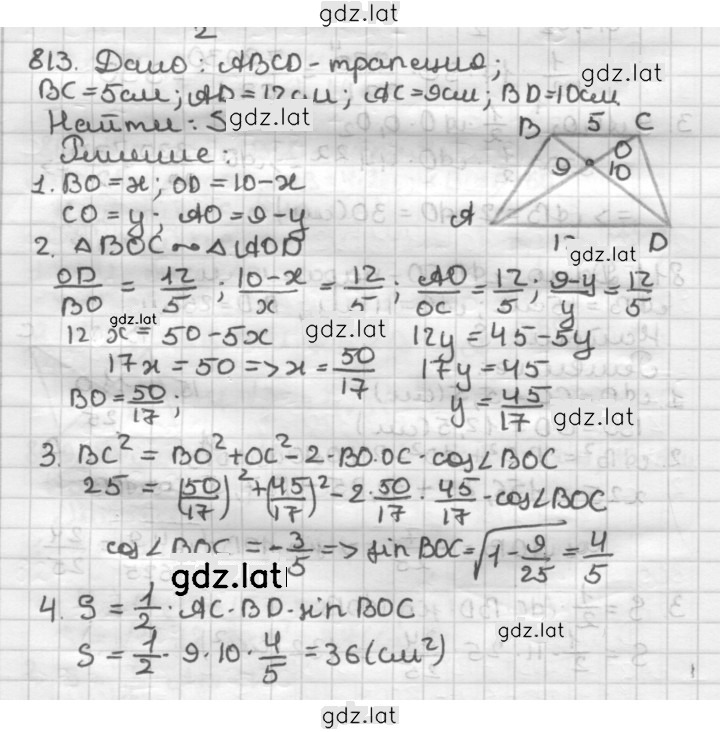 gdz.lat
813. Дано: ABCD - трапеция; gdz.lat
BC = 5см; AD = 12см; AC = 9см; BD = 10см
Найти: S gdz.lat
B 5 C
Решение:
9 O 10
1. BO = x; OD = 10-x
CO = y; AO = 9-y
A 1 D gdz.lat
2. △BOC ~ △AOD
OD/BO = 12/5; (10-x)/x = 12/5; AO/OC = 12/5; (9-y)/y = 12/5
gdz.lat
12x = 50-5x gdz.lat 12y = 45-5y
17x = 50 => x = 50/17 17y = 45
BO = 50/17; y = 45/17 gdz.lat
3. BC² = BO² + OC² - 2·BO·OC·cos∠BOC
25 = (50/17)² + (45/17)² - 2·50/17·45/17·cos∠BOC
cos∠BOC = -3/5 => sin BOC = √(1 - 9/25) = 4/5
gdz.lat
4. S = 1/2·AC·BD·sin BOC
gdz.lat
S = 1/2·9·10·4/5 = 36 (см²)
gdz.lat